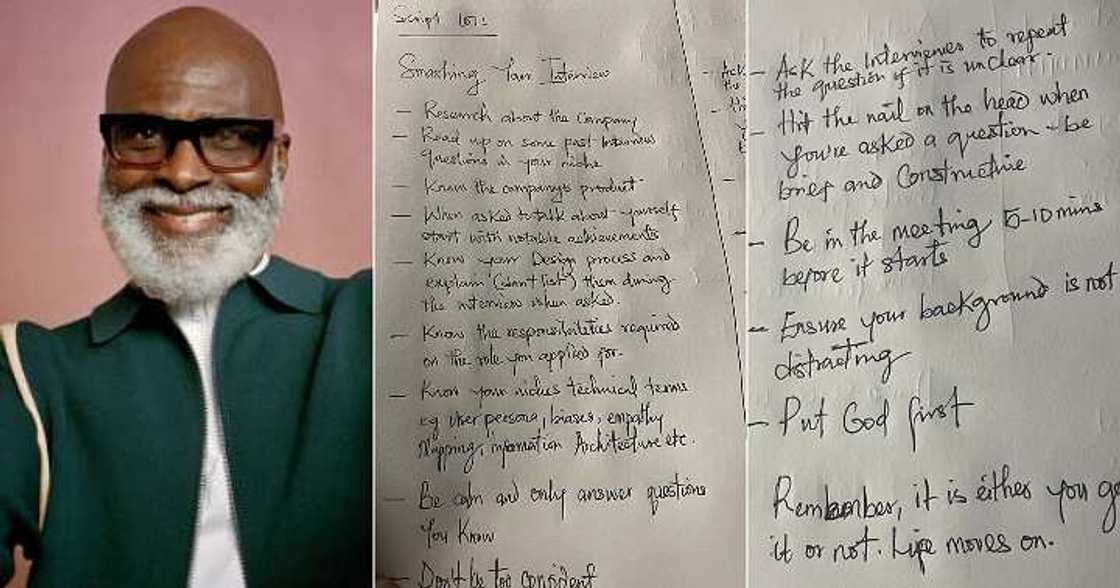 Script 101:
Smashing Your Interview
- Research about the Company
- Read up on some past Interview
questions in your niche
- Know the company's product
- When asked to talk about yourself
start with notable achievements
- Know your Design process and
explain (don't list) them during
the interview when asked.
- Know the responsibilities required
on the role you applied for.
- Know your niches technical terms
eg User persona, biases, empathy
Mapping, information Architecture etc.
- Be calm and only answer questions
You Know
- Don't be too confident
- Ask the Interviewer to repeat
the question if it is unclear.
- Hit the nail on the head when
you're asked a question - be
brief and Constructive
- Be in the meeting 5-10 mins
before it starts
- Ensure your background is not
distracting
- Put God first
Remember, it is either you get
it or not. Life moves on.